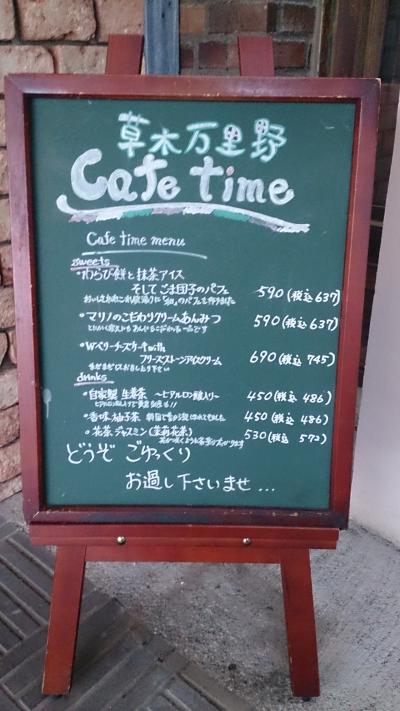 草木万里野
Cafe time
Cafe time menu
sweets
・わらび餅と抹茶アイス
そしてごま団子のパフェ 590 (税込 637)
・マリノのこだわりクリームあんみつ 590 (税込 637)
・Wベリーチーズケーキwith
フリーズストーンアイスクリーム 690 (税込 745)
drinks
・自家製 生姜茶 〜ヒアルロン酸入り〜 450 (税込 486)
・香味 柚子茶 450 (税込 486)
・花茶 ジャスミン (茉莉花茶) 530 (税込 572)
どうぞ ごゆっくり
お過し下さいませ...